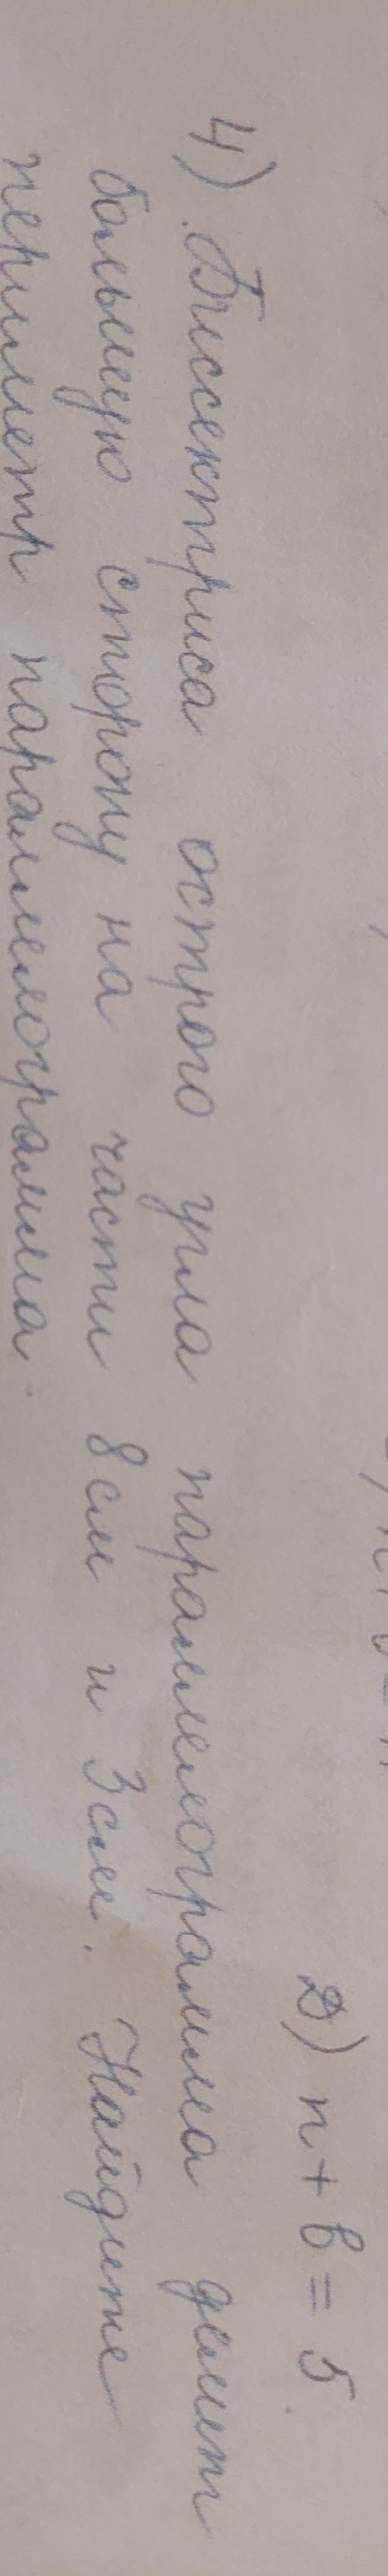 Д) n + b = 5
4) Биссектриса острого угла параллелограмма делит
большую сторону на части 8 см и 3 см. Найдите
периметр параллелограмма.